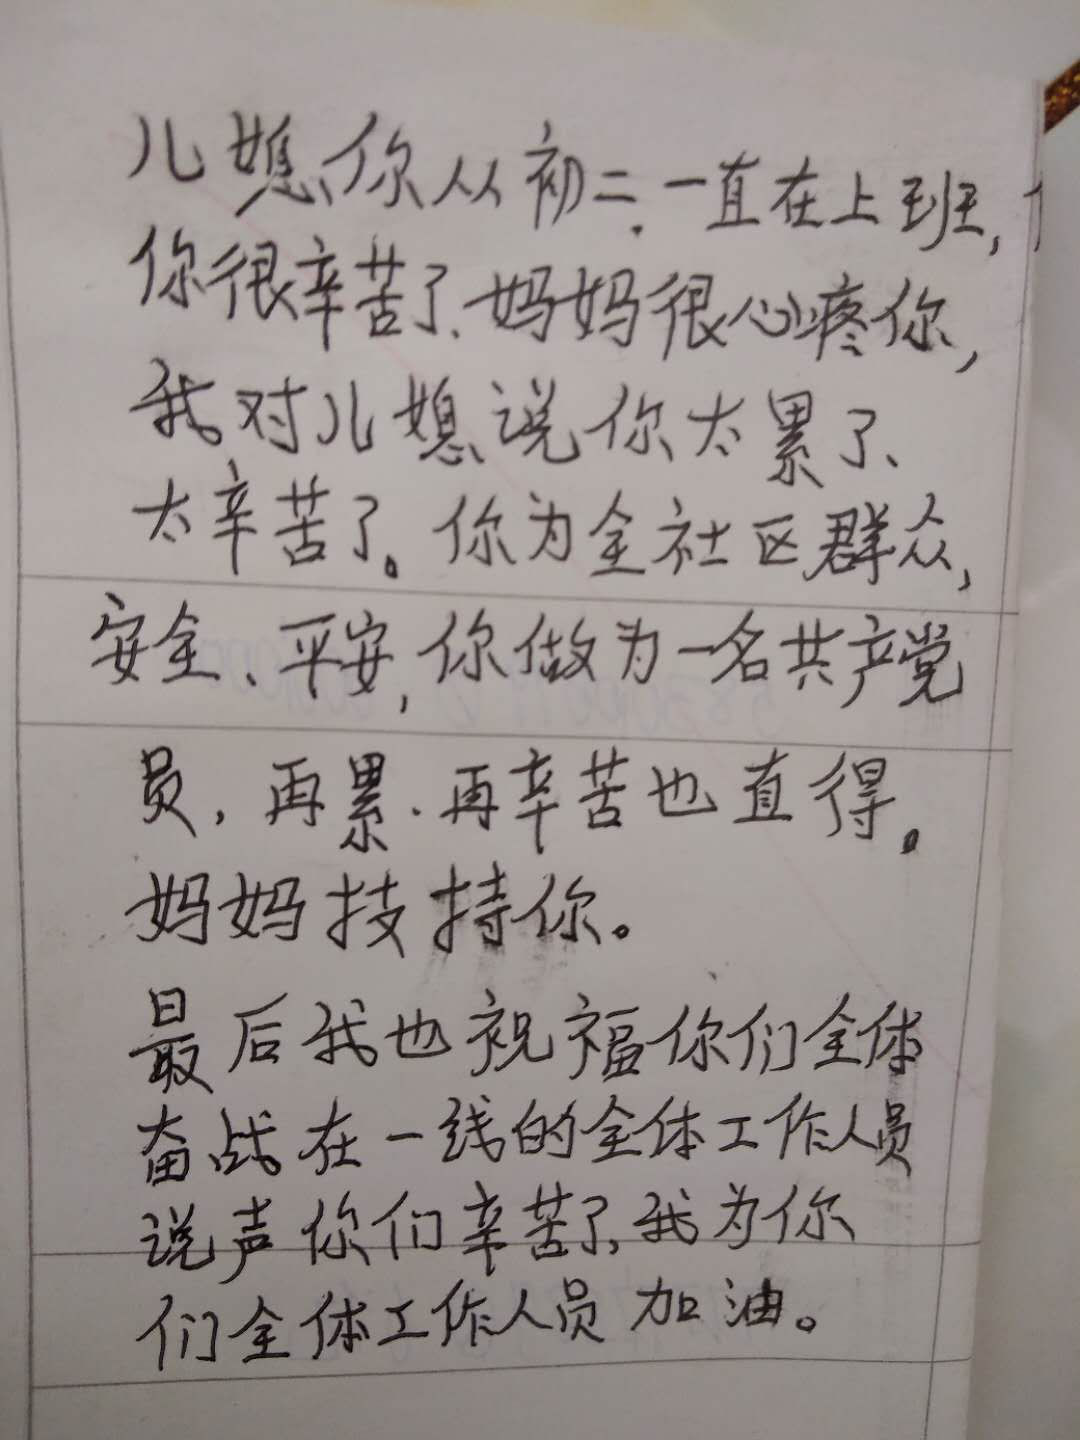 儿媳你从初二.一直在上班,
你很辛苦了、妈妈很心疼你,
我对儿媳说你太累了、
太辛苦了。你为全社区群众,
安全、平安,你做为一名共产党
员,再累.再辛苦也直得。
妈妈技持你。
最后我也祝福你们全体
奋战在一线的全体工作人员
说声你们辛苦了,我为你
们全体工作人员加油。